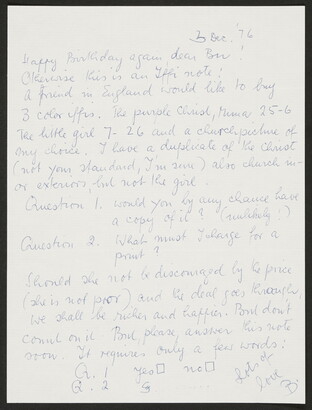 3 Dec. '76
Happy Birthday again, dear Bow!
Otherwise this is an Iffi note!
A friend in England would like to buy
3 color iffis. The purple Christ, Numa 25-6
The little girl 7-26 and a churchpicture of
my choice. I have a duplicate of the Christ
(not your standard, I'm sure) also church in-
or exteriors but not the girl.
Question 1. would you by any chance have
a copy of it? (unlikely!)
Question 2. What must I charge for a
print?
Should she not be discouraged by the price
(she is not poor) and the deal goes through,
we shall be richer and happier. But don't
count on it. But, please answer this note
soon. It requires only a few words:
Q. 1 yes no
Q. 2 $
lots of
love